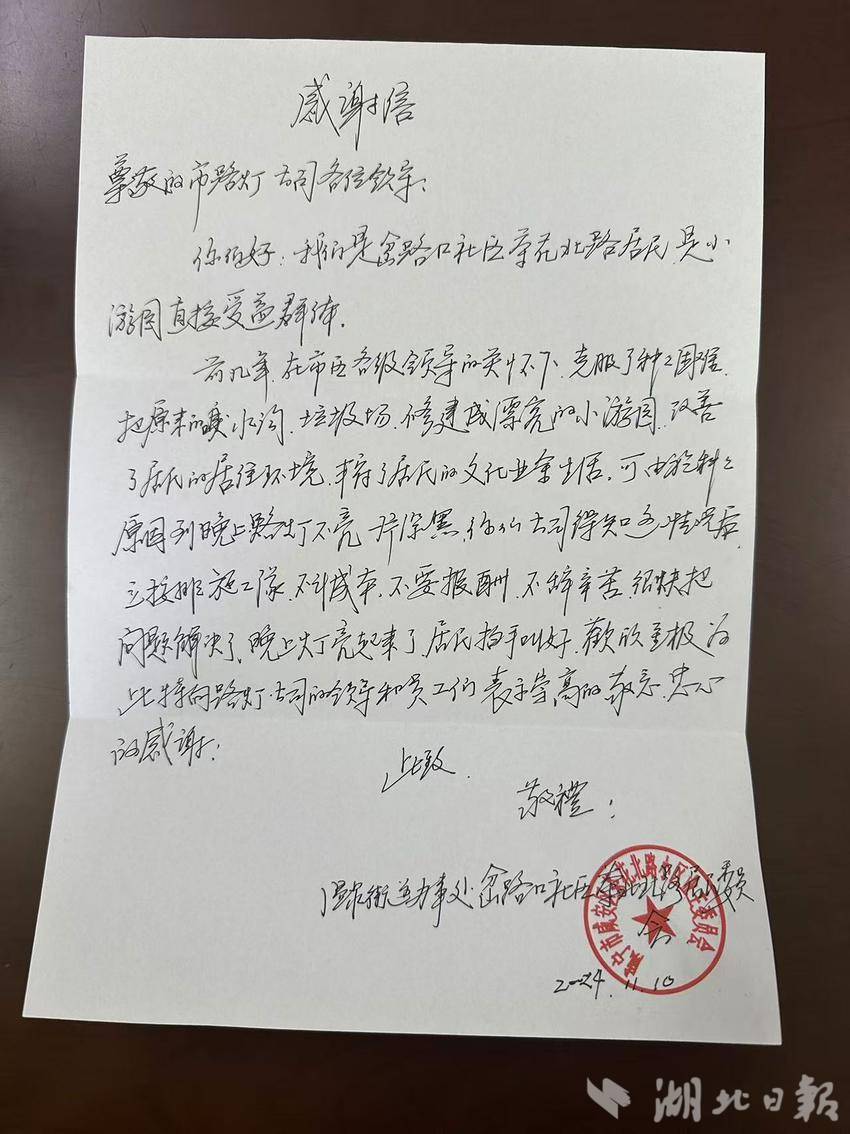 感谢信
尊敬的市路灯公司各位领导：
你们好：我们是岔路口社区茶花北路居民，是小
游园直接受益群体.
前几年，在市区各级领导的关怀下，克服了种々困难，
把原来的水沟、垃圾场，修建成漂亮的小游园，改善
了居民的居住环境，丰富了居民的文化业余生活，可由于种々
原因到晚上路灯不亮，一片漆黑，你们公司得知这一情况后，
立接排施工队，不计成本，不要报酬，不辞辛苦，很快把
问题解决了，晚上灯亮起来了，居民拍手叫好，欢欣至极，为
此特向路灯公司的领导和员工们表示崇高的敬意，忠心
的感谢！
此致.
敬禮！
温泉街道办事处岔路口社区茶花北路业委员
会
2024.11.10
咸宁市咸安区茶花北路小区业主委员会
湖北日報